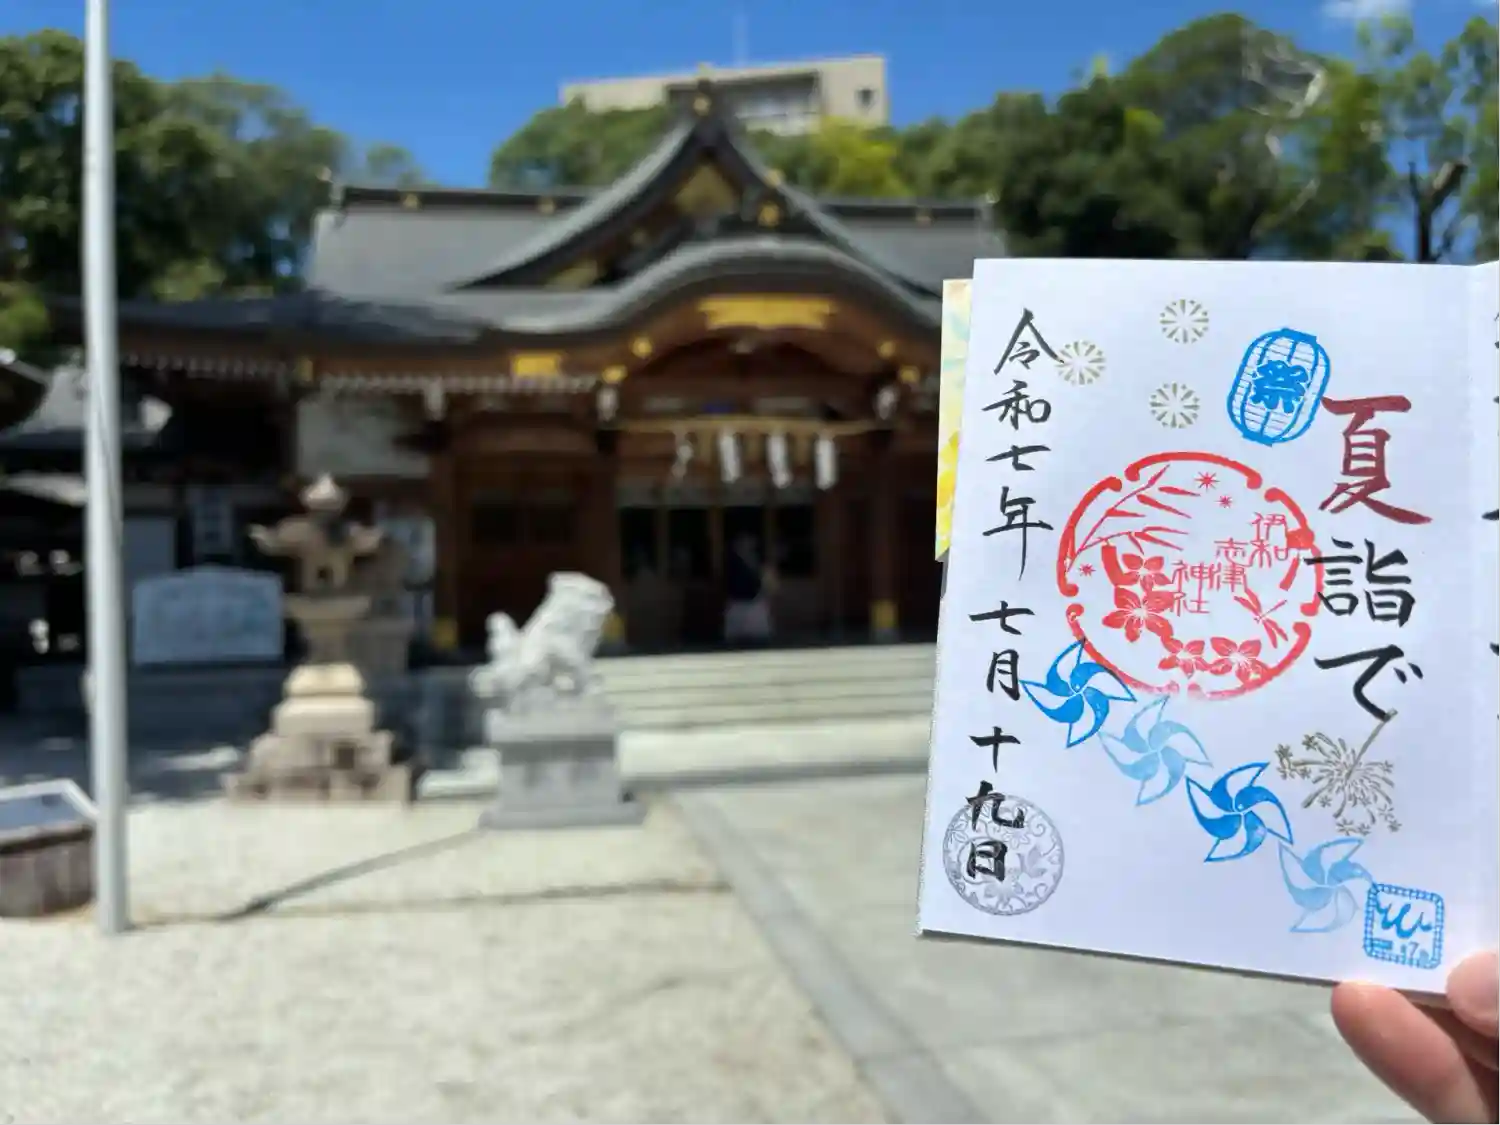 祭
夏詣で
伊和
志津
神社
令和七年 七月十九日